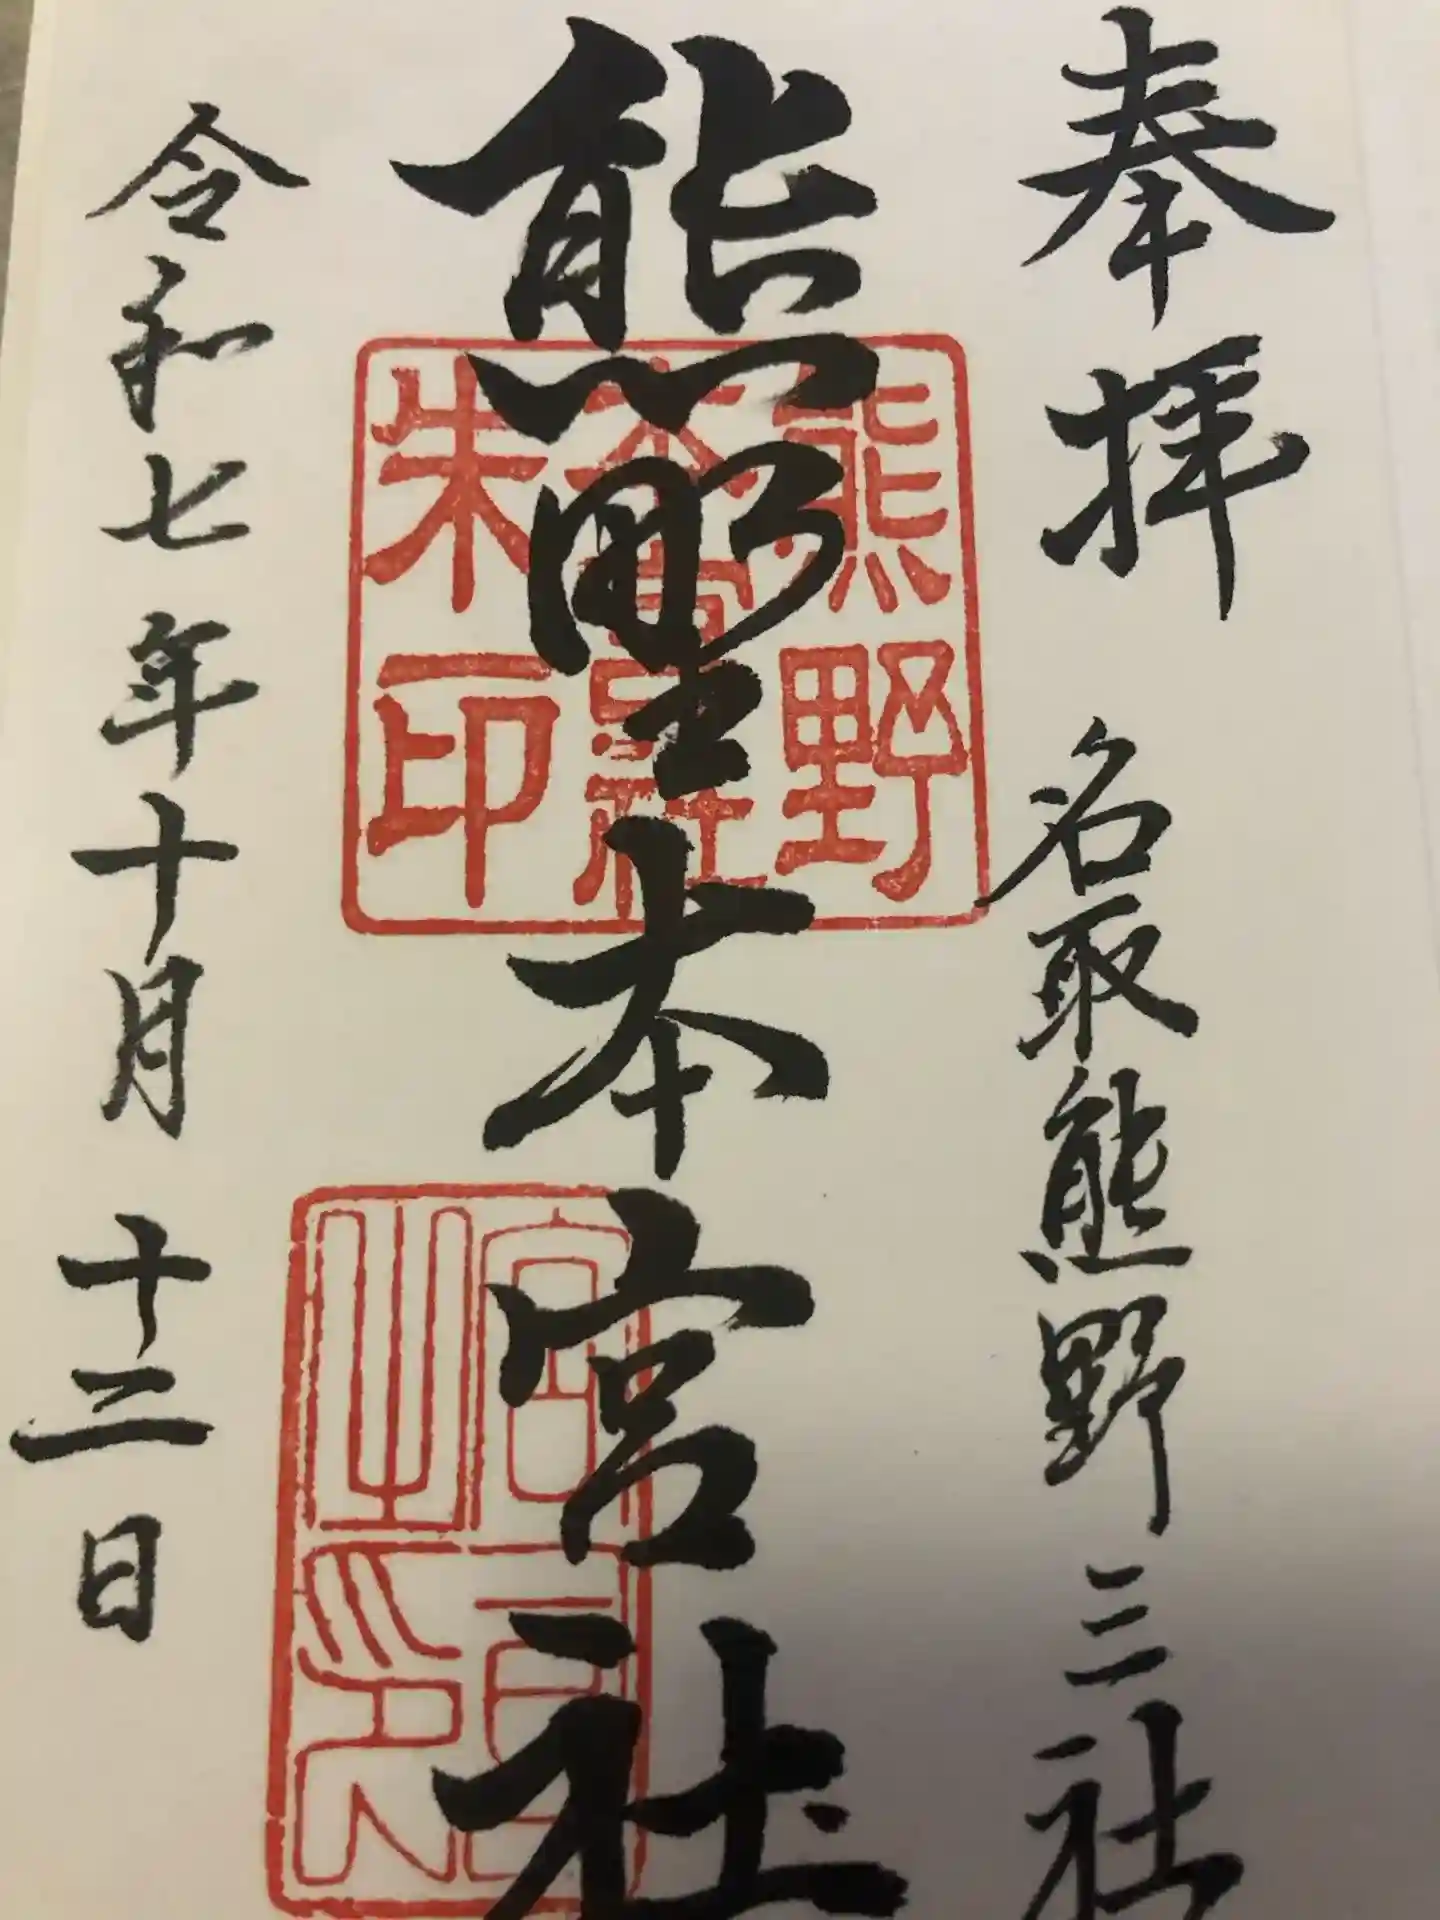 奉拝 名取熊野三社
熊野本宮社
令和七年十月十二日
熊野
本宮社
朱印
宮司
之印